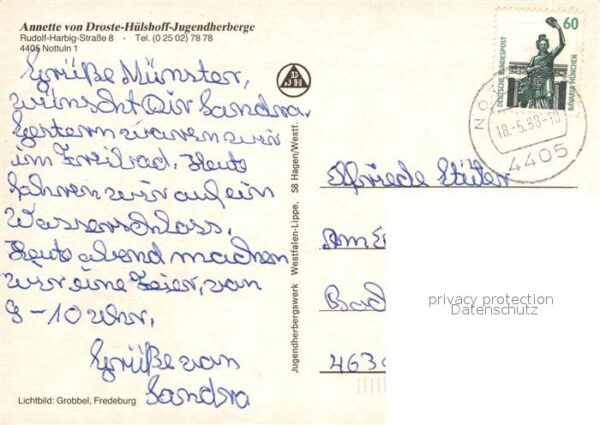 Annette von Droste-Hülshoff-Jugendherberge
Rudolf-Harbig-Straße 8 - Tel. (0 25 02) 78 78
4405 Nottuln 1
Grüße Münster,
wünscht Dir Sandra.
Gestern waren wir
im Freibad. Heute
fahren wir auf ein
Wasserschloss.
Heute abend machen
wir eine Feier, von
9-10 Uhr.
Grüße von
Sandra
Lichtbild: Grobbel, Fredeburg
Jugendherbergswerk Westfalen-Lippe, 58 Hagen/Westf.
DEUTSCHE BUNDESPOST
60
BAVARIA MÜNCHEN
18.-5.89-10
4405
Elfriede Stüter
Am
Bad
463
privacy protection
Datenschutz